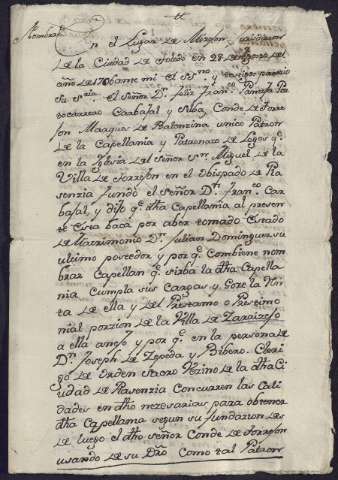 Nombram.to
En el Lugar de Mozejon, Jurisdizion
de la Ciudad de Toledo en 28 de
año de 1706 ante mi el SS.no y testigos parezio
Su S.ria el Señor D.n Felix Fran.co Pantoja
Portocarrero Carbajal y Silba Conde de Torre
Jon Marques de Valonzina unico Patron
de la Capellania y Patronato de Legos q.e
en la Iglesia del Señor San Miguel de la
Villa de Torrejon en el Obispado de Pla
senzia fundó el Señor D.n Fran.co Car
bajal, y dijo q.e dha Capellania al presen
te esta baca por aber tomado Estado
de Matrimonio D.n Julian Dominguez su
ultimo poseedor y por q.e combiene nom
brar Capellan q.e sirba la dha Capella
nia cumpla sus cargas y Goze la Ren
ta de ella y del Prestamo o Prestimo
nial porzion de la Villa de
a ella anejo y por q.e en la persona de
D.n Joseph de Zepeda y Ribero Cleri
go de Orden Sacro Vezino de la dha Ci
udad de Plasenzia Concurren las Cali
dades en dho nezesarias para obtener
dha Capellania segun su fundazion des
de luego el dho señor Conde de Torrejon
usando de su Dro Como tal Patron